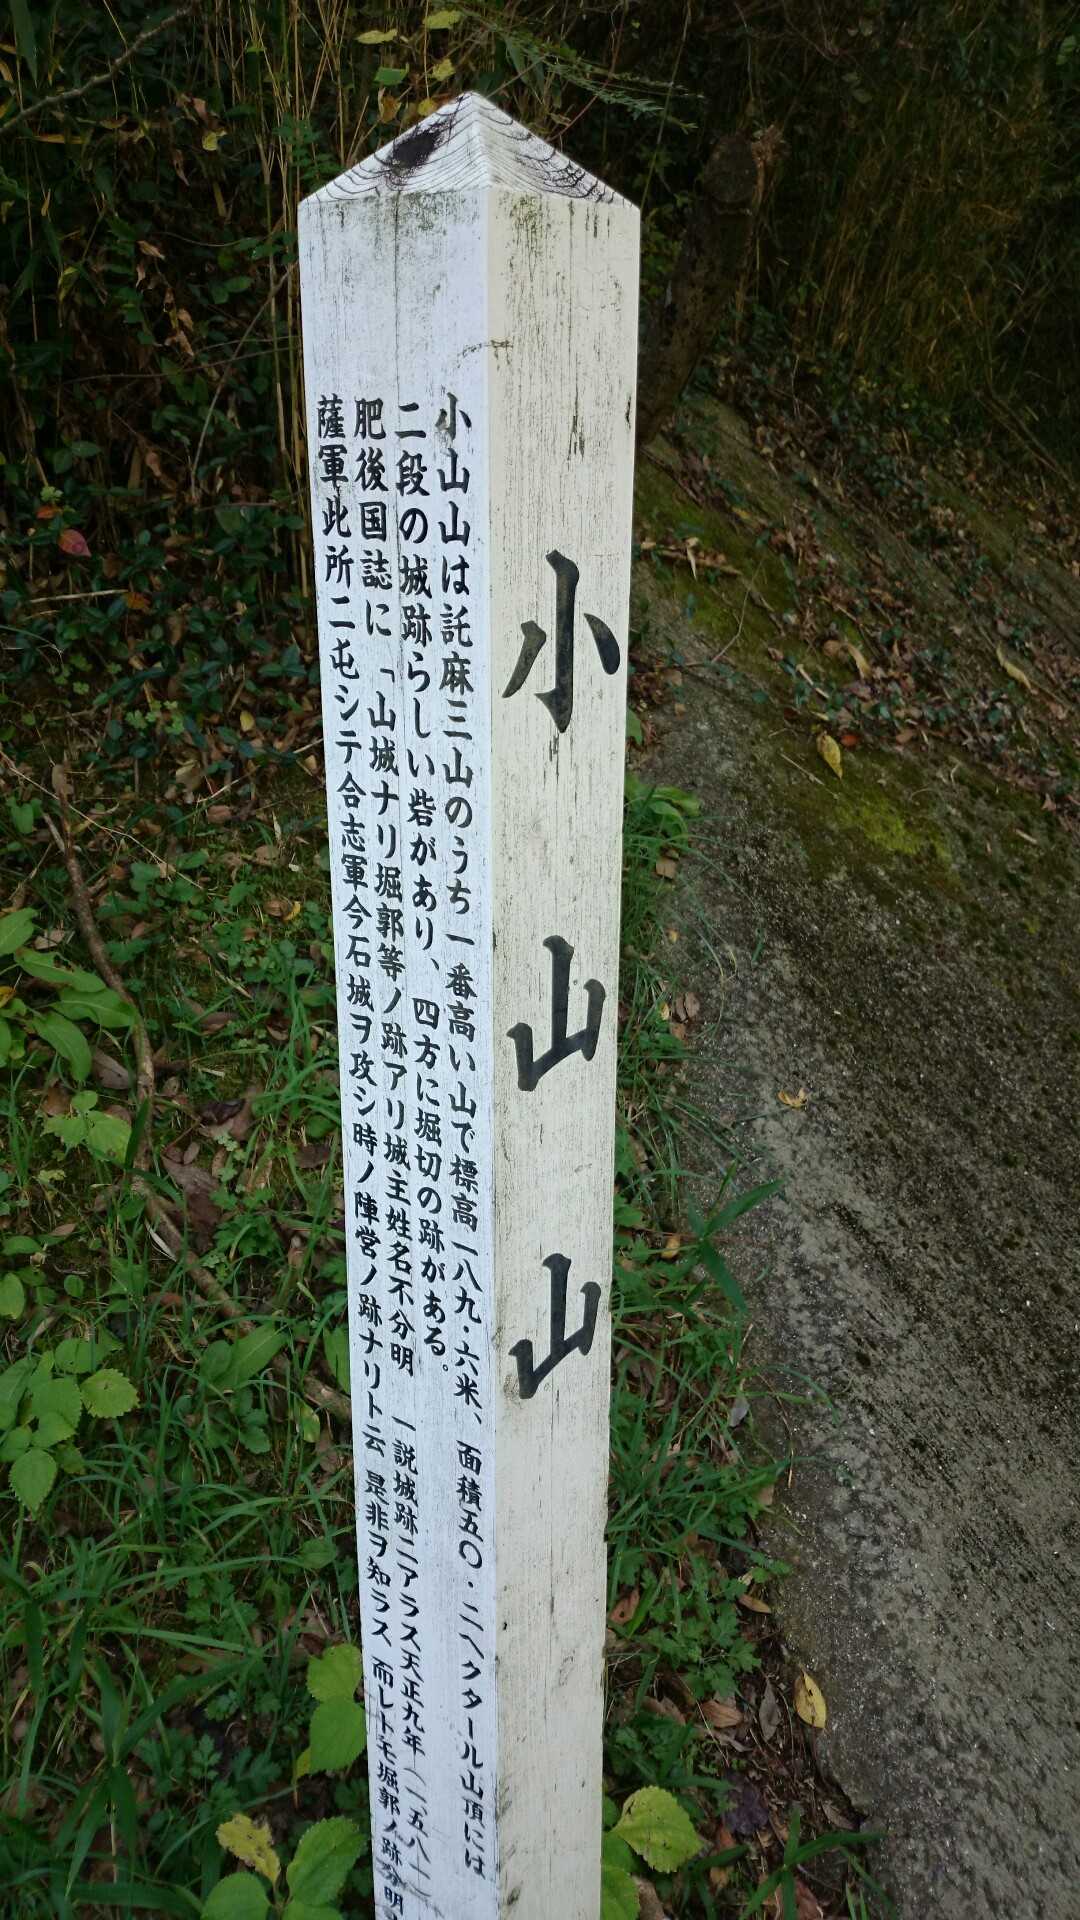 小山山
小山山は託麻三山のうち一番高い山で標高一八九・六米、面積五〇・二ヘクタール山頂には
二段の城跡らしい砦があり、四方に堀切の跡がある。
肥後国誌に「山城ナリ堀郭等ノ跡アリ城主姓名不分明 一説城跡ニアラス天正九年(一、五八一
薩軍此所ニ屯シテ合志軍今石城ヲ攻シ時ノ陣営ノ跡ナリト云 是非ヲ知ラス 而レトモ堀郭ノ跡分明